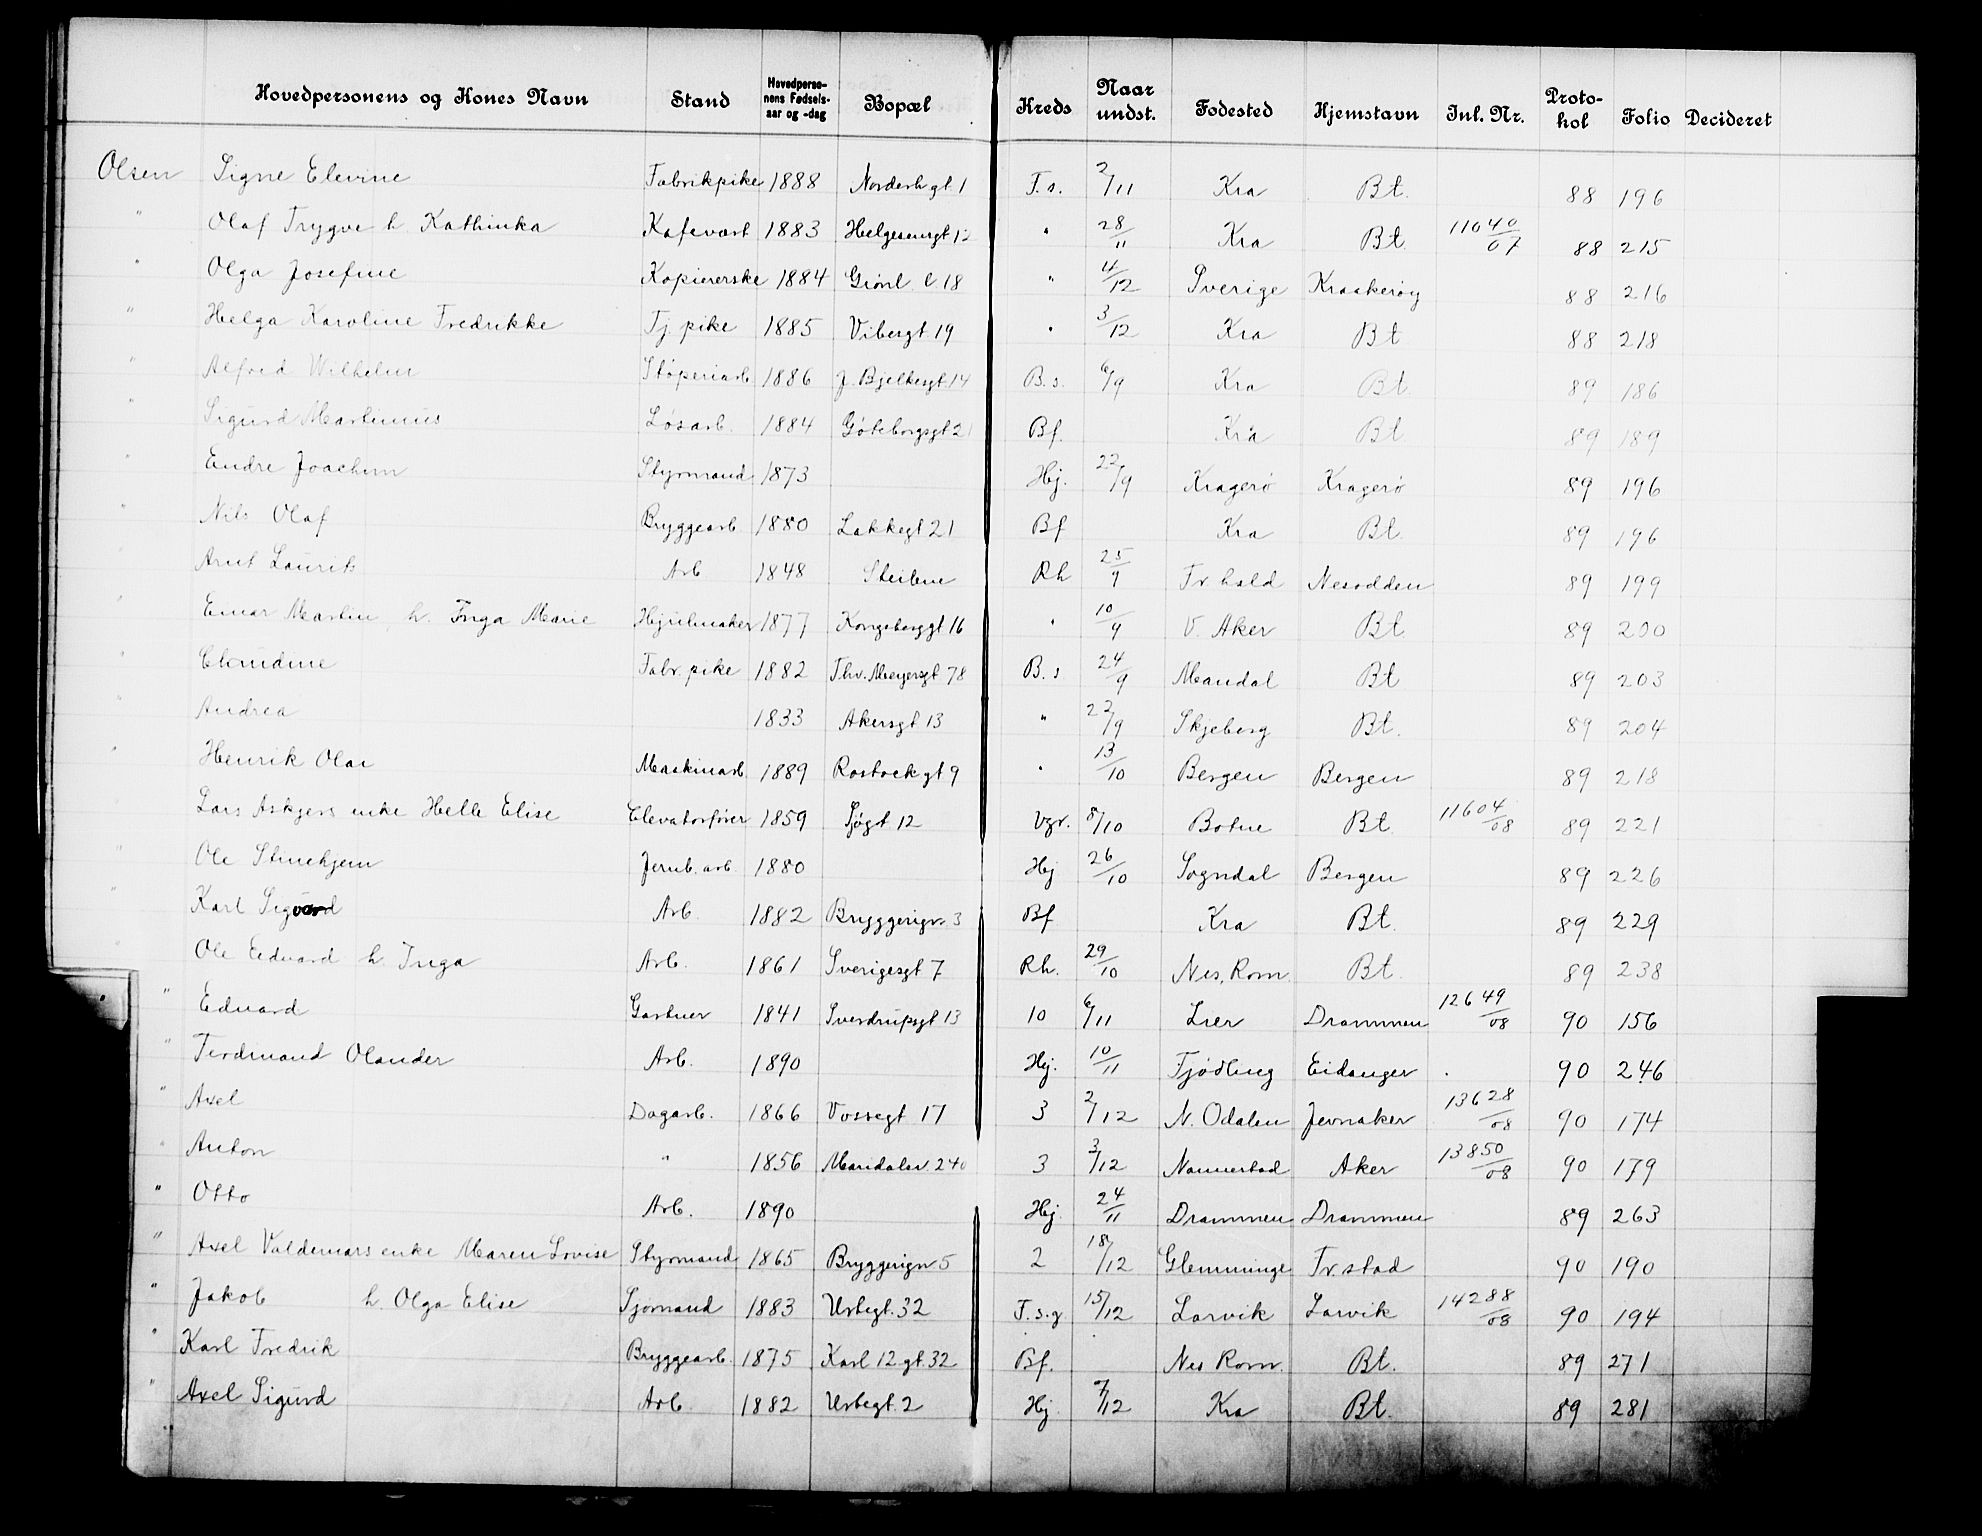 Hovedpersonens og Kones Navn Stand Hovedperso-nens Fødsels-aar og -dag Bopæl Kreds Naar undst. Fødested Hjemstavn Inl. Nr. Proto-kol Folio Decideret
Olsen Signe Elevine Fabrikpike 1888 Norderh gt. 1 F.s. 2/11 Kra Bt. 88 196
" Olaf Trygve h. Kathinka Kafevært 1883 Helgesensgt 12 " 28/11 Kra Bt. 11040/07 88 215
" Olga Josefine Kopiererske 1884 Grønl. l 18 " 4/12 Sverige Kraakerøy 88 216
" Helga Karoline Fredrikke Tj. pike 1885 Vibesgt 19 " 3/12 Kra Bt 88 218
" Alfred Wilhelm Støperiarb 1886 J. Bjelkesgt. 14 B.s. 6/9 Kra Bt. 89 186
" Sigurd Martinius Løsarb. 1884 Gøteborgsgt 21 Bf. Kra Bt 89 189
" Endre Joachim Styrmand 1873 Hj. 22/9 Kragerø Kragerø 89 196
" Nils Olaf Bryggearb. 1880 Lakkegt 21 Bf Kra Bt. 89 196
" Arnt Laurits Arb 1848 Steilene Rh 25/9 Fr. hald Nesodden 89 199
" Einar Martin, h. Inga Marie Hjulmaker 1877 Kongsberggt 16 " 10/9 V. Aker Bt. 89 200
" Claudine Fabr. pike 1882 Thv. Meyersgt 78 B.s 24/9 Mandal Bt 89 203
" Andrea 1833 Akersgt 13 " 22/9 Skjeberg Bt. 89 204
" Henrik Olai Maskinarb. 1889 Rostockgt 9 " 13/10 Bergen Bergen 89 218
" Lars Askjers enke Helle Elise Elevatorfører 1859 Sjøgt 12 Vgr. 8/10 Botne Bt. 11604/08 89 221
" Ole Stinehjem Jernb. arb. 1880 Hj 26/10 Sogndal Bergen 89 226
" Karl Sigvard Arb. 1882 Bryggerigv. 3 Bf Kra Bt. 89 229
" Ole Edvard h. Inga Arb. 1861 Sverigesgt 7 Rh. 29/10 Nes, Rom. Bt. 89 238
" Edvard Gartner 1841 Sverdrupsgt 13 10 6/11 Lier Drammen 12649/08 90 156
" Ferdinand Olander Arb. 1890 Hj. 10/11 Eidanger . 90 246
" Axel Dagarb. 1866 Vossegt 17 3 2/12 N. Odalen Jevnaker 13628/08 90 174
" Anton " 1856 Maridalsv. 240 3 3/12 Nannestad Aker 13850/08 90 179
" Otto Arb. 1890 Hj. 24/11 Drammen Drammen 89 263
" Axel Valdemars enke Maren Lovise Styrmand 1865 Bryggerigv 5 2 18/12 Glemminge Fr. stad 90 190
" Jakob h. Olga Elise Sjømand 1883 Urtegt. 32 F.s.g. 15/12 Larvik Larvik 14288/08 90 194
" Karl Fredrik Bryggearb. 1875 Karl 12 gt. 32 Bf. Nes Rom. Bt. 89 271
" Axel Sigurd Arb. 1882 Urtegt. 2 Hj. 7/12 Kra Bt. 89 281